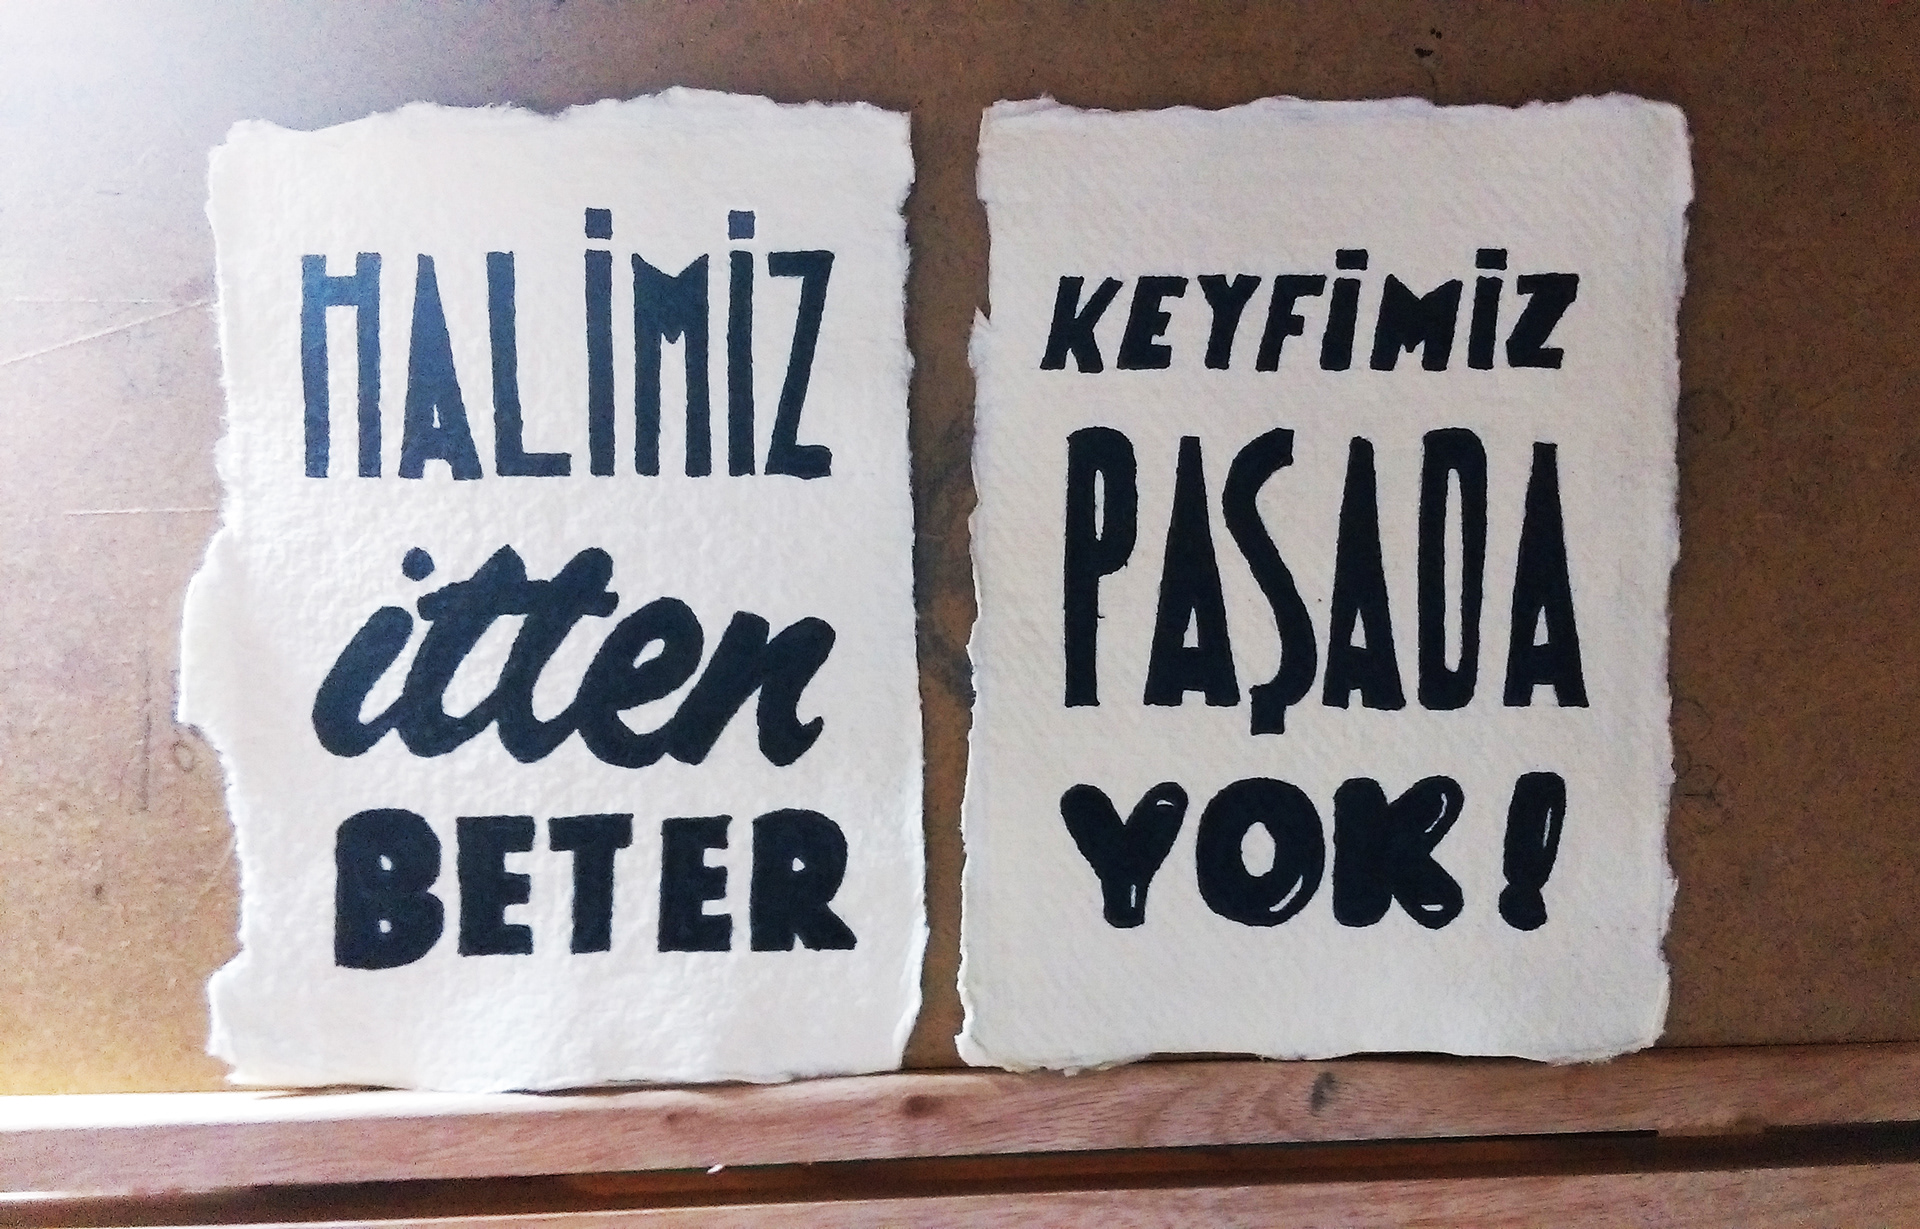 HALİMİZ
itten
BETER
KEYFİMİZ
PAŞADA
YOK!